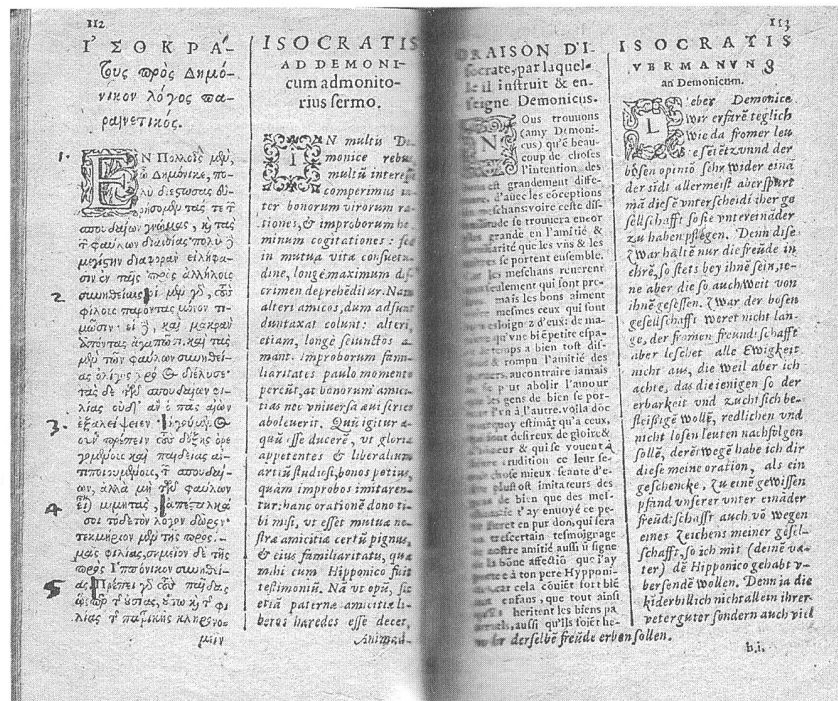 112
Ι᾽ΣΟΚΡΑ-
τους πρὸς Δημό-
νικον λόγος πα-
ραινετικός.
1.
ΕΝ Πολλοῖς μὲν,
ὦ Δημόνικε, πο-
λὺ διεστώσας εὑ-
ρήσομεν τάς τε τ
σπουδαίων γνώμας, κ τὰς
τ φαύλων διανοίας· πολὺ
μεγίστην διαφορὰν εἰλήφα-
σιν ἐν ταῖς πρὸς ἀλλήλοις
2
συνηθείαις. οἱ μὲν γ τοὺς
φίλους παρόντας μόνον τι-
μῶσιν· οἱ καὶ μακρὰν
ἀπόντας ἀγαπῶσι. καὶ τὰς
μὲν τῶν φαύλων συνηθεί-
ας ὀλίγος χρόνος διέλυσε·
τὰς δὲ τ σπουδαίων φι-
λίας οὐδ' ἂν ὁ πᾶς αἰὼν
3.
ἐξαλείψειεν. ἡγοῦμαι
οὖν πρέπειν τοὺς δόξης ὀρε
γομένους καὶ παιδείας ἀν-
τιποιουμένους, τ σπουδαί-
ων, ἀλλὰ μὴ τῶν φαύλων
4
εἶ) μιμητάς, ἀπέσταλκά
σοι τόνδε τὸν λόγον δῶρον·
τεκμήριον μὲν τῆς πρὸς
μᾶς φιλίας, σημεῖον δὲ τῆς
πρὸς Ἱππόνικον συνηθεί-
5
ας. Πρέπει γ τοὺς παῖδας
ὥσπερ τ οὐσίας, οὕτω κ τ φι
λίας τ πατρικῆς κληρονο-
μεῖν
ISOCRATIS
AD DEMONI-
cum admonito-
rius sermo.
IN multis De
monice rebus
multū interesse
comperimus in
ter bonorum virorum ra
tiones, & improborum ho
minum cogitationes: sed
in mutua vitæ consuetu
dine, longè maximum dis
crimen deprehēditur. Nam
alteri amicos, dum adsunt
duntaxat colunt: alteri,
etiam, longè seiunctos a
mant. Improborum fami
liaritates paulo momento
pereūt, at bonorum amici
tias nec vniuersa æui series
aboleuerit. Quū igitur æ
quū esse ducerē, vt gloriæ
appetentes & liberalium
artiū studiosi, bonos potius,
quàm improbos imitaren
tur: hanc orationē dono ti
bi misi, vt esset mutuæ no
stræ amicitiæ certū pignus,
& eius familiaritatis, quæ
mihi cum Hipponico fuit
testimoniū. Nā vt opū, sic
etiā paternæ amicitiæ li-
beros hæredes esse decet,
153
ORAISON D'I-
socrate, par laquel-
le il instruit & en-
seigne Demonicus.
NOus trouuons
(amy Demoni-
cus) qu'ē beau-
coup de choses
l'intention des
bons est grandement diffe-
rente, d'auec les cōceptions
des meschans: voire ceste diffe-
plus grande en l'amitié &
familiarité que les vns & les
autres se portent ensemble.
Car les meschans reuerent
seulement qui sont pre-
mais les bons aiment
mesmes ceux qui sont
esloignez d'eux: de ma-
qu'vne biē petite espa-
ce de temps a bien tost dis-
& rompu l'amitié des
, aucontraire iamais
ne peut abolir l'amour
que les gens de bien se por-
tent l'vn à l'autre. voila donc
pourquoy estimāt qu'a ceux,
qui sont desireux de gloire &
& qui se vouent à
erudition ce leur se-
chose mieux seante d'e-
stre plustost imitateurs des
gens de bien que des mes-
ie t'ay enuoyé ce pe-
en pur don, qui sera
trescertain tesmoignage
de nostre amitié aussi ū signe
de la bōne affectiō que i'ay
portee à ton pere Hypponi-
car cela cōuiēt fort biē
enfans, que tout ainsi
qu'ils heritent les biens pa-
ternels, aussi qu'ils soiēt he-
ISOCRATIS
VERMANVNG
an Demonicum.
Lieber Demonice
Wir erfarē teglich
Wie da fromer leu
te seīē tz vnnd der
bösen opinió sehr Wider einā
der sidt allermeist aber spürt
mā diesē vnterscheidt iher ge
sellschafft so sie vntereināder
zu haben pflegen. Denn dise
Zwar haltē nur die freūde in
ehrē, so stets bey ihnē sein, ie-
ne aber die so auch Weit von
ihnē gesessen. Zwar der bösen
gesellschafft weret nicht lan-
ge, der fromen freund schafft
aber leschet alle Ewigkeit
nicht aus, die Weil aber ich
achte, das die ienigen so der
erbarkeit vnd zucht sich be-
fleissigē wollē, redlichen vnd
nicht losen leuten nachfolgen
sollē, derē wegē habe ich dir
diese meine oration, als ein
geschencke, zu einē gewissen
pfand vnserer vnter eināder
freūdschafft auch vō wegen
eines Zeichens meiner gesel-
schafft, so ich mit (deinē va-
ter) dē Hipponico gehabt v-
bersendē wollen. Denn ja die
kīder billich nicht allein ihrer
veter güter sondern auch viel
mehr derselbē freūde erben sollen.
b.i.